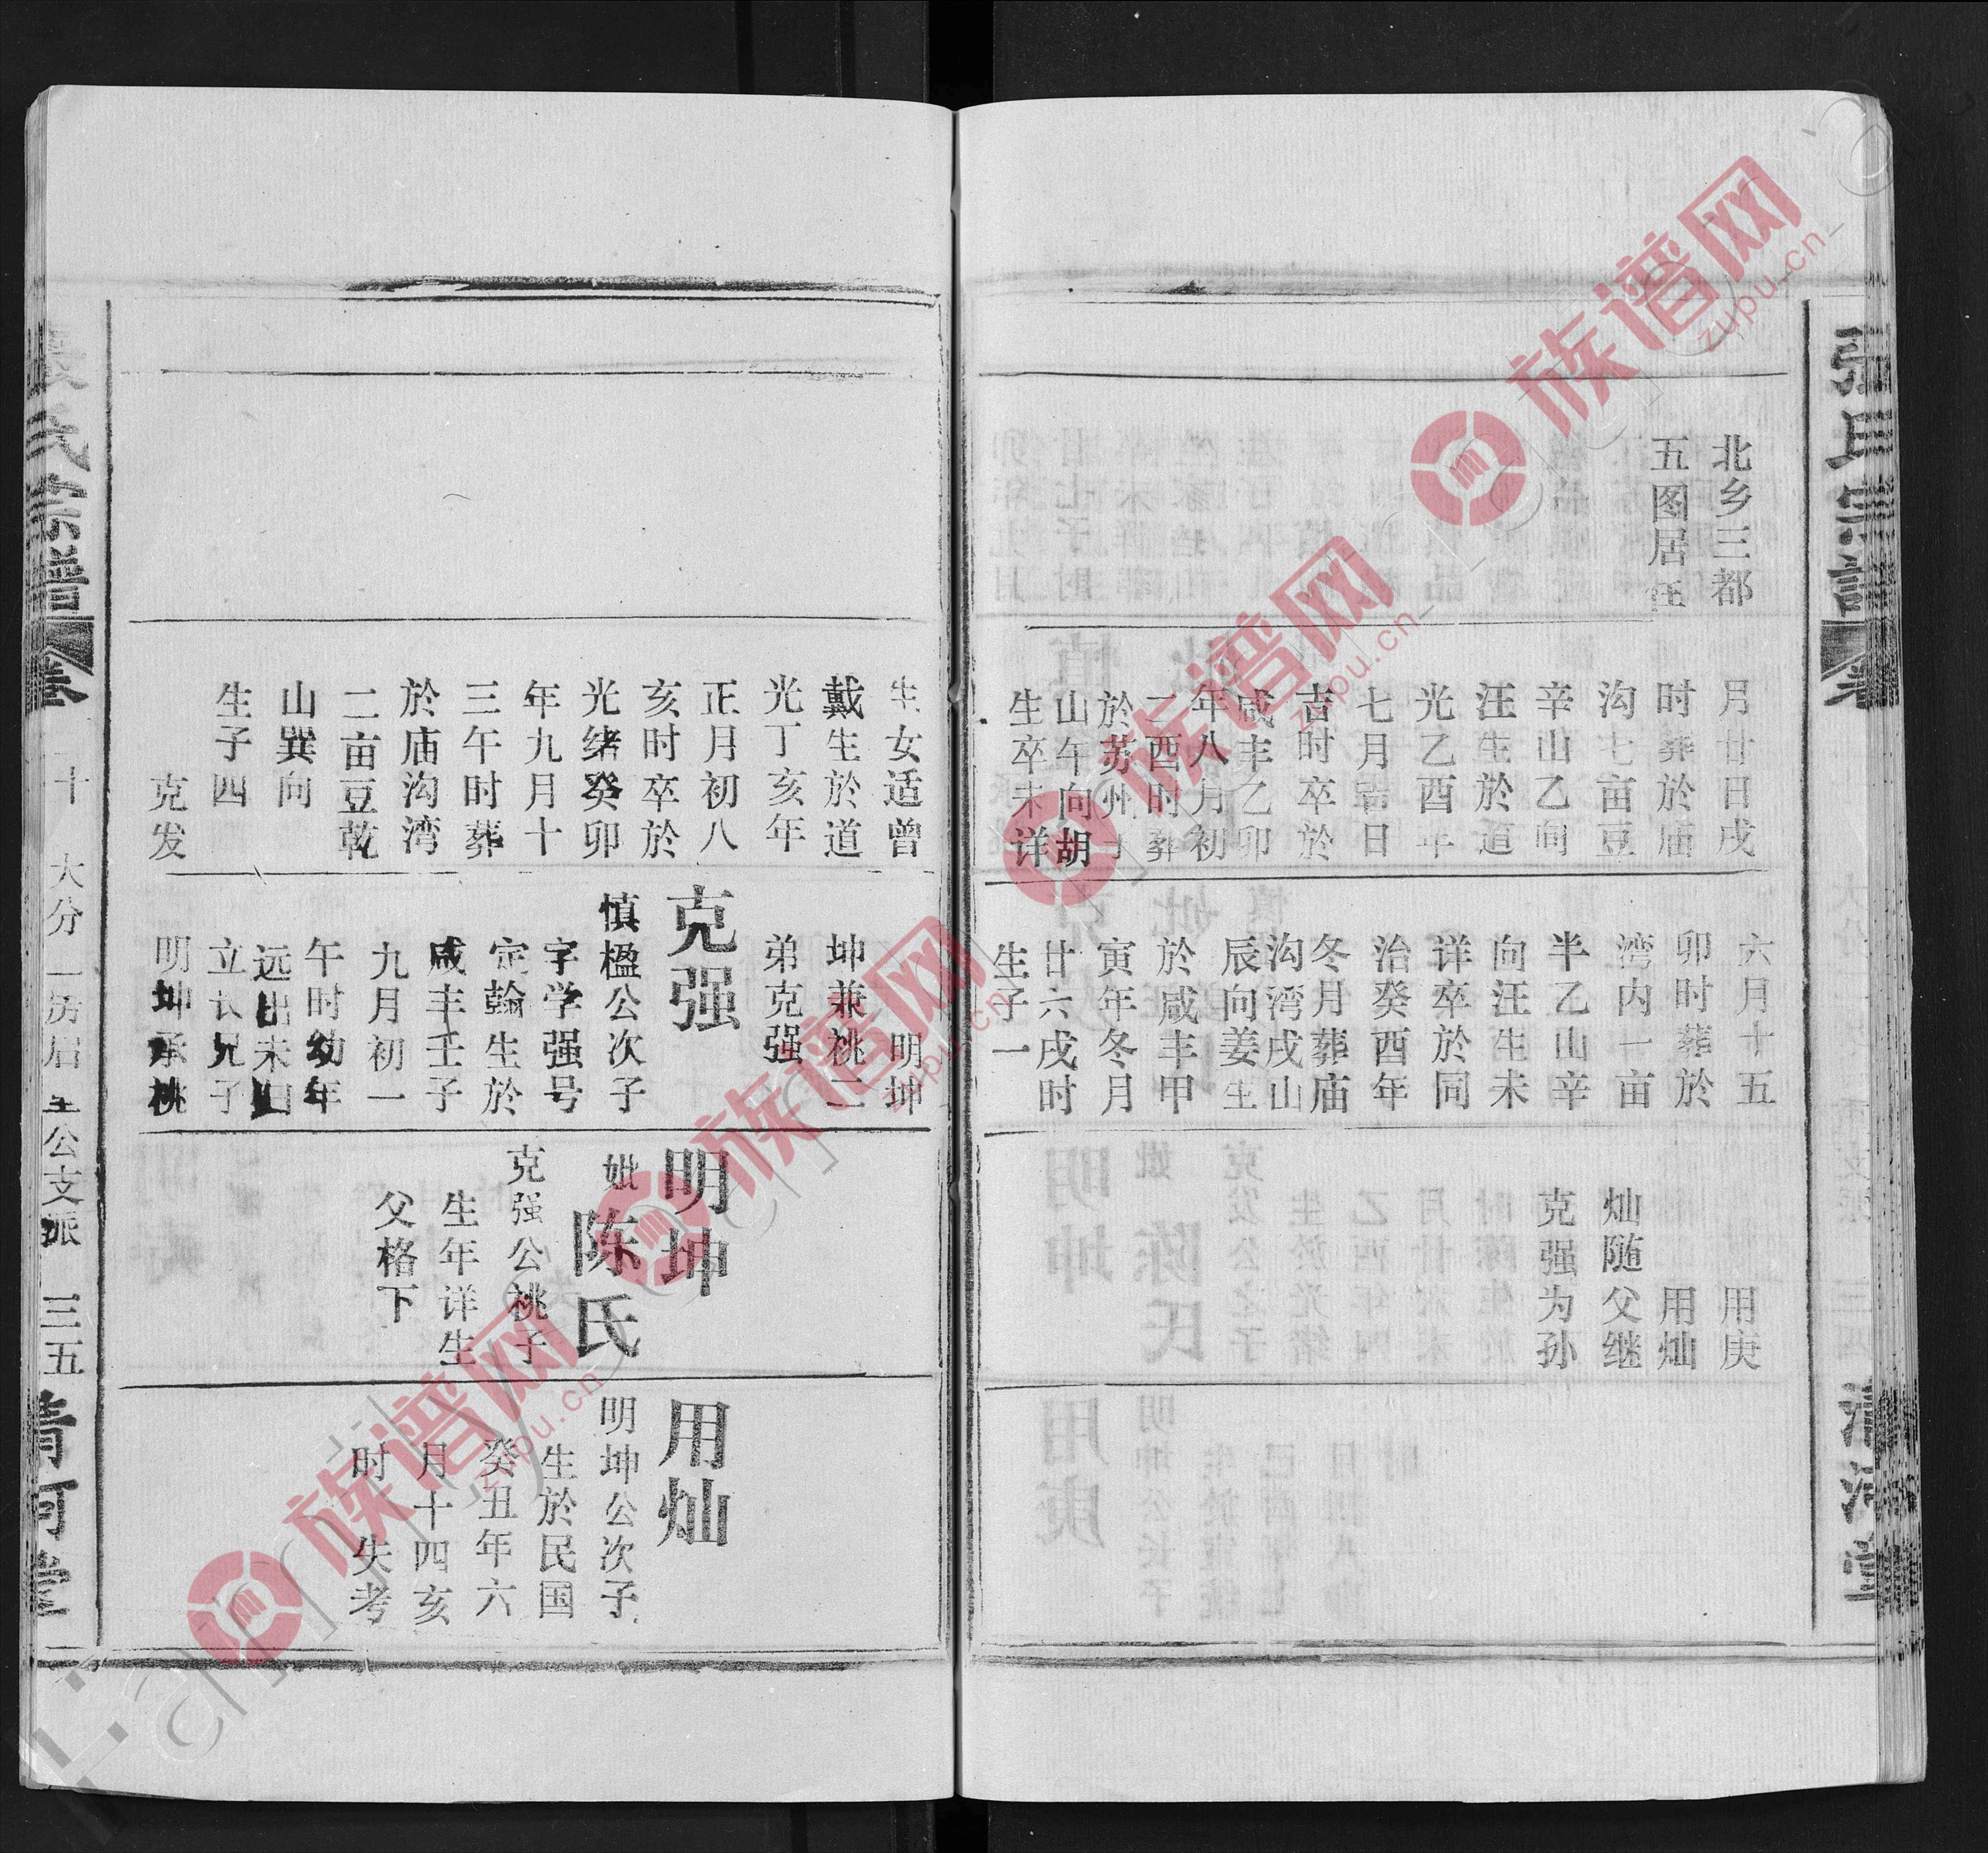 张氏宗谱
卷
清河堂
北乡三都
五图居
月廿日戌
时葬於庙
沟七亩豆
辛山乙向
汪生於道
光乙酉年
七月日
吉时卒於
咸丰乙卯
年八月初
二酉时葬
於苏州
山午向胡
生卒未详
六月十五
卯时葬於
湾内一亩
半乙山辛
向汪生未
详卒於同
治癸酉年
冬月葬庙
沟湾戌山
辰向姜生
於咸丰甲
寅年冬月
廿六戌时
生子一
用庚
用灿
灿随父继
克强为孙
生女适曾
戴生於道
光丁亥年
正月初八
亥时卒於
光绪癸卯
年九月十
三午时葬
於庙沟湾
二亩豆乾
山巽向
生子四
克发
明坤
坤兼祧二
弟克强
克强
慎楹公次子
字学强号
定翰生於
咸丰壬子
九月初一
午时幼年
远出未
立长兄子
明坤承祧
明坤
妣陈氏
克强公祧子
生年详生
父格下
用灿
明坤公次子
生於民国
癸丑年六
月十四亥
时 失考
氏宗谱
卷
二十
大分一房启公支派
三五
清河堂
族谱网
zupu.cn
族谱网
zupu.cn
族谱网
zupu.cn
族谱网
zupu.cn